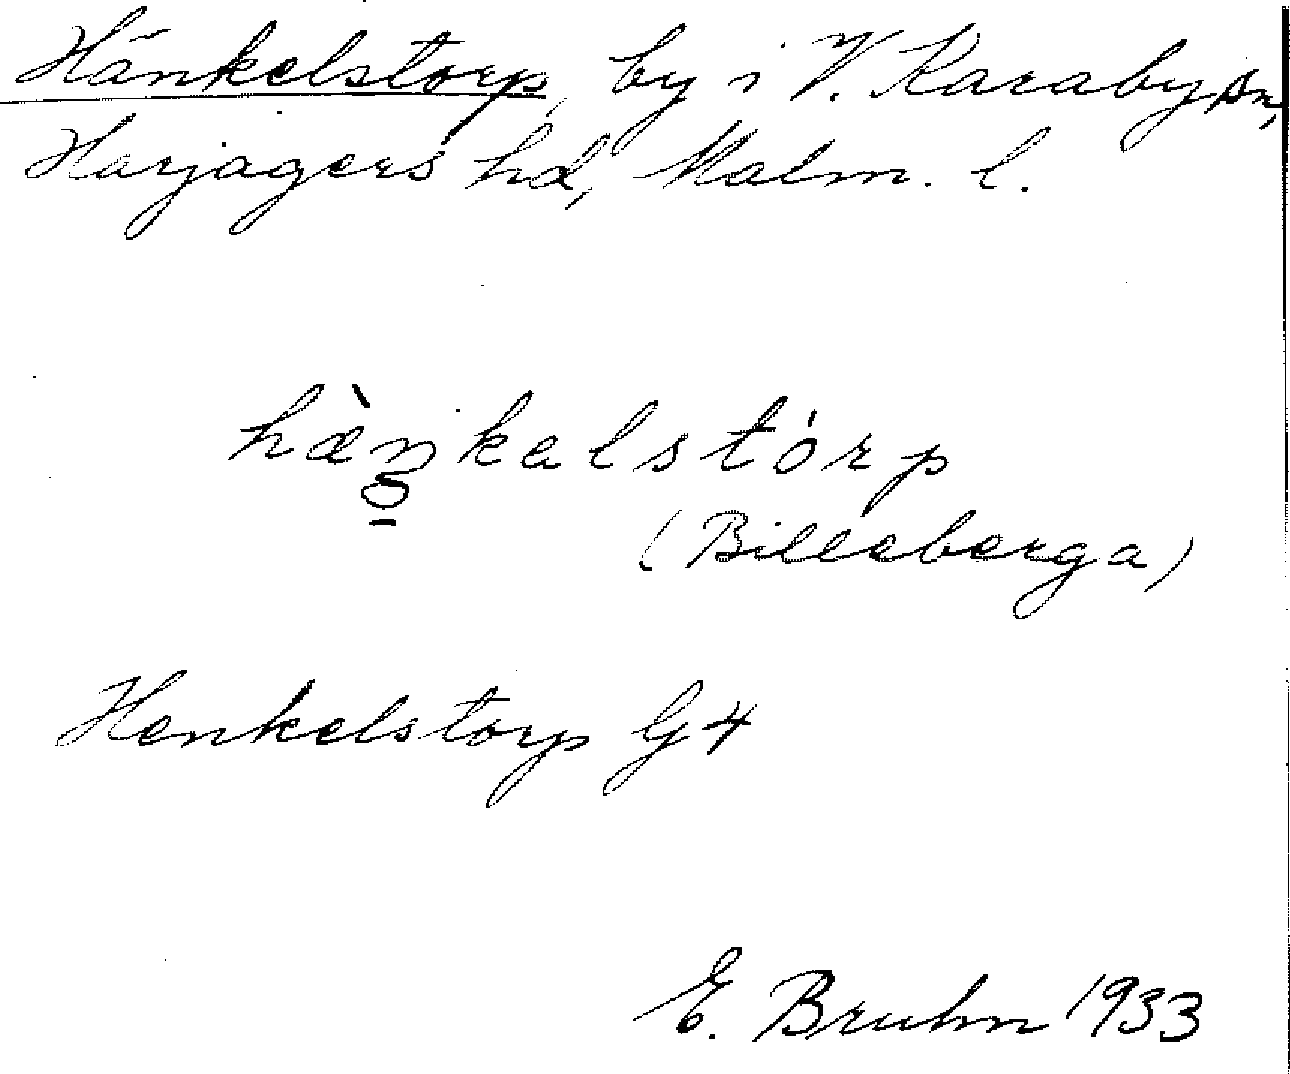 Hänkelstorp, by i V. Karaby sn,
Harjagers hd, Malm. l.
hæ̀ŋkəlstórp
(Billeberga)
Henkelstorp G4
E. Bruhn 1933